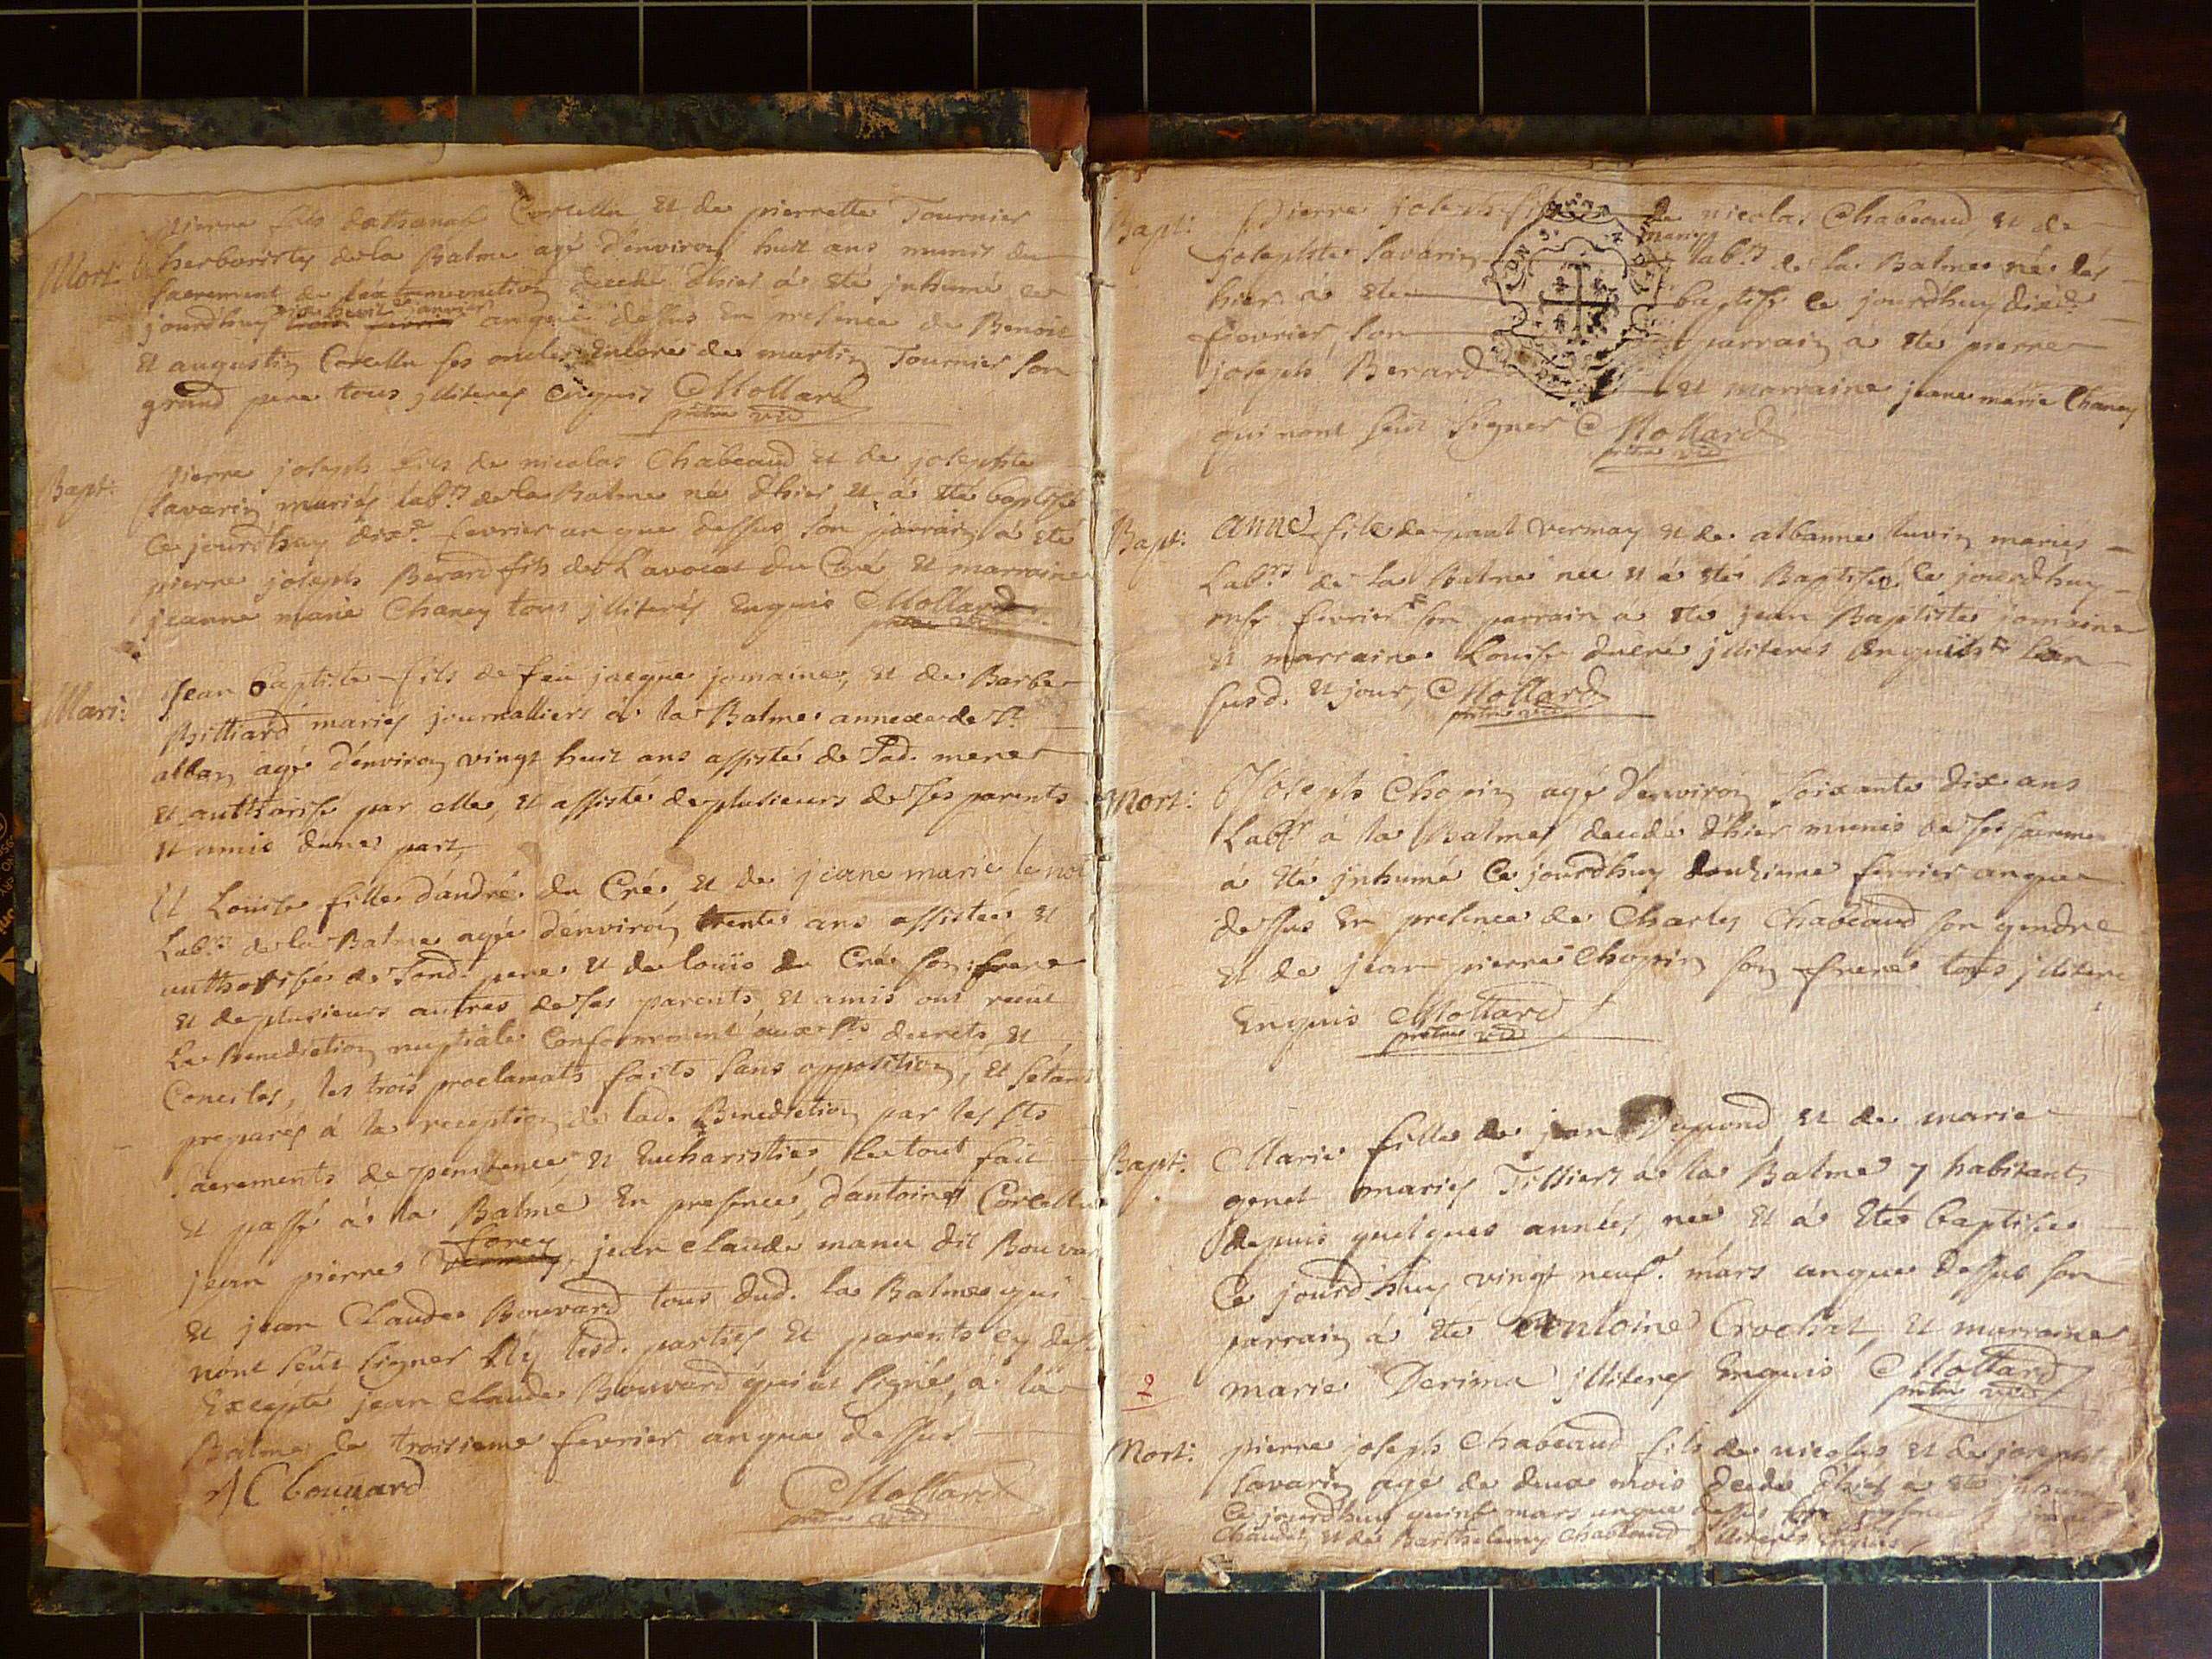 Mort:
pierre fils dathanas Corcellu, et de pierrette Tournier
herboristes de la Balme agé d'environ huit ans munit du
sacrement de decedé d'hier á eté inhumé ce
jourdhuy dix huit janvier an que dessus En presence de Benoit
et augustin Corcellu ses oncles Encore de martin Tournier son
grand pere tous jlliteres enquis Mollard
prêtre vic
Bapt:
pierre joseph fils de nicolas Chabeaud et de josephte
Savarin mariés labrs de la Balme né d'hier et á eté baptisé
Ce jourd'huy dixe fevrier an que dessus son parrain á eté
pierre joseph Berard fils de L'avocat du Cré et marraine
jeanne marie Chaney tous jlliterés Enquis Mollard
prêtre vic
Mari:
Jean Baptiste fils de feu jacque jomaine, et de Barbe
Billiard mariés journalliers á la Balme annexe de St
alban agé d'environ vingt huit ans assisté de Sad. mere
et authorisé par elle, et assisté de plusieurs de ses parents
et amis d'une part,
Et Louise fille d'andré du Cré, et de jeane marie
Labrs de la Balme agée d'environ trente ans assistée et
authorisée de Sond. pere et de louis du Cré son frere
et de plusieurs autres de ses parents et amis ont recut
La Benediction nuptiale Conformement aux sts decrets et
Conciles, les trois proclamats faits sans opposition, et s'étant
preparés á la reception de lad. Benediction par les sts
sacrements de penitence et Eucharistie, le tout fait
et passé á la Balme En presence, d'antoine Corcellu
jean pierre forey, jean claude manu dit Bouvar
et jean Claude Bouvard tous dud. la Balme qui
n'ont seut signer Ny lesd. parties et parents cy dess
Excepté jean claude Bouvard qui at signé, á la
Balme le troisieme fevrier an que dessus
J C bouuard
Mollard
prêtre vic
Bapt:
Pierre joseph fils de nicolas Chabeaud et de
josephte Savarin mariés labrs de la Balme né dés
hier á eté baptisé ce jourdhuy dixe
fevrier, son parrain á eté pierre
joseph Berard et marraine jeane marie Chaney
qui nont seut signer Mollard
prêtre vic
Bapt:
anne fille de paul vermay et de albanne luvin mariés
Labrs de la Balme née et á eté Baptisée Ce jourdhuy
onse fevrier son parrain a eté jean Baptiste jomaine
et marraine Louise ducré jlliterés Enquis l'an
susd. et jour, Mollard
prêtre vic
Mort:
Joseph Chopin agé d'environ soixante dix ans
Labr á la Balme, decedé d'hier munis de ses sacreme
á eté jnhumé Ce jourd'huy douzieme fevrier an que
dessus En presence de Charles Chabeaud son gendre
et de jean pierre Chopin son frere tous jllitere
Enquis Mollard
prêtre vic
Bapt:
Marie fille de jean Dupond, et de marie
genet mariés Tissiers á la Balme y habitants
depuis quelques années, née et á eté baptisée
Ce jourd.huy vingt neuf. mars an que dessus son
parrain á eté Antoine Crochat, et marraine
marie Derima jlliteres Enquis Mollard
prêtre vic
2
Mort:
pierre joseph Chabeaud fils de nicolas et de joseph
Savarin agé de deux mois decedé d'hier a eté inhum
Ce jourd'huy quinse mars an que dessus presence
Chaudet, et de Barthelemy Chabeaud jlliterés enquis